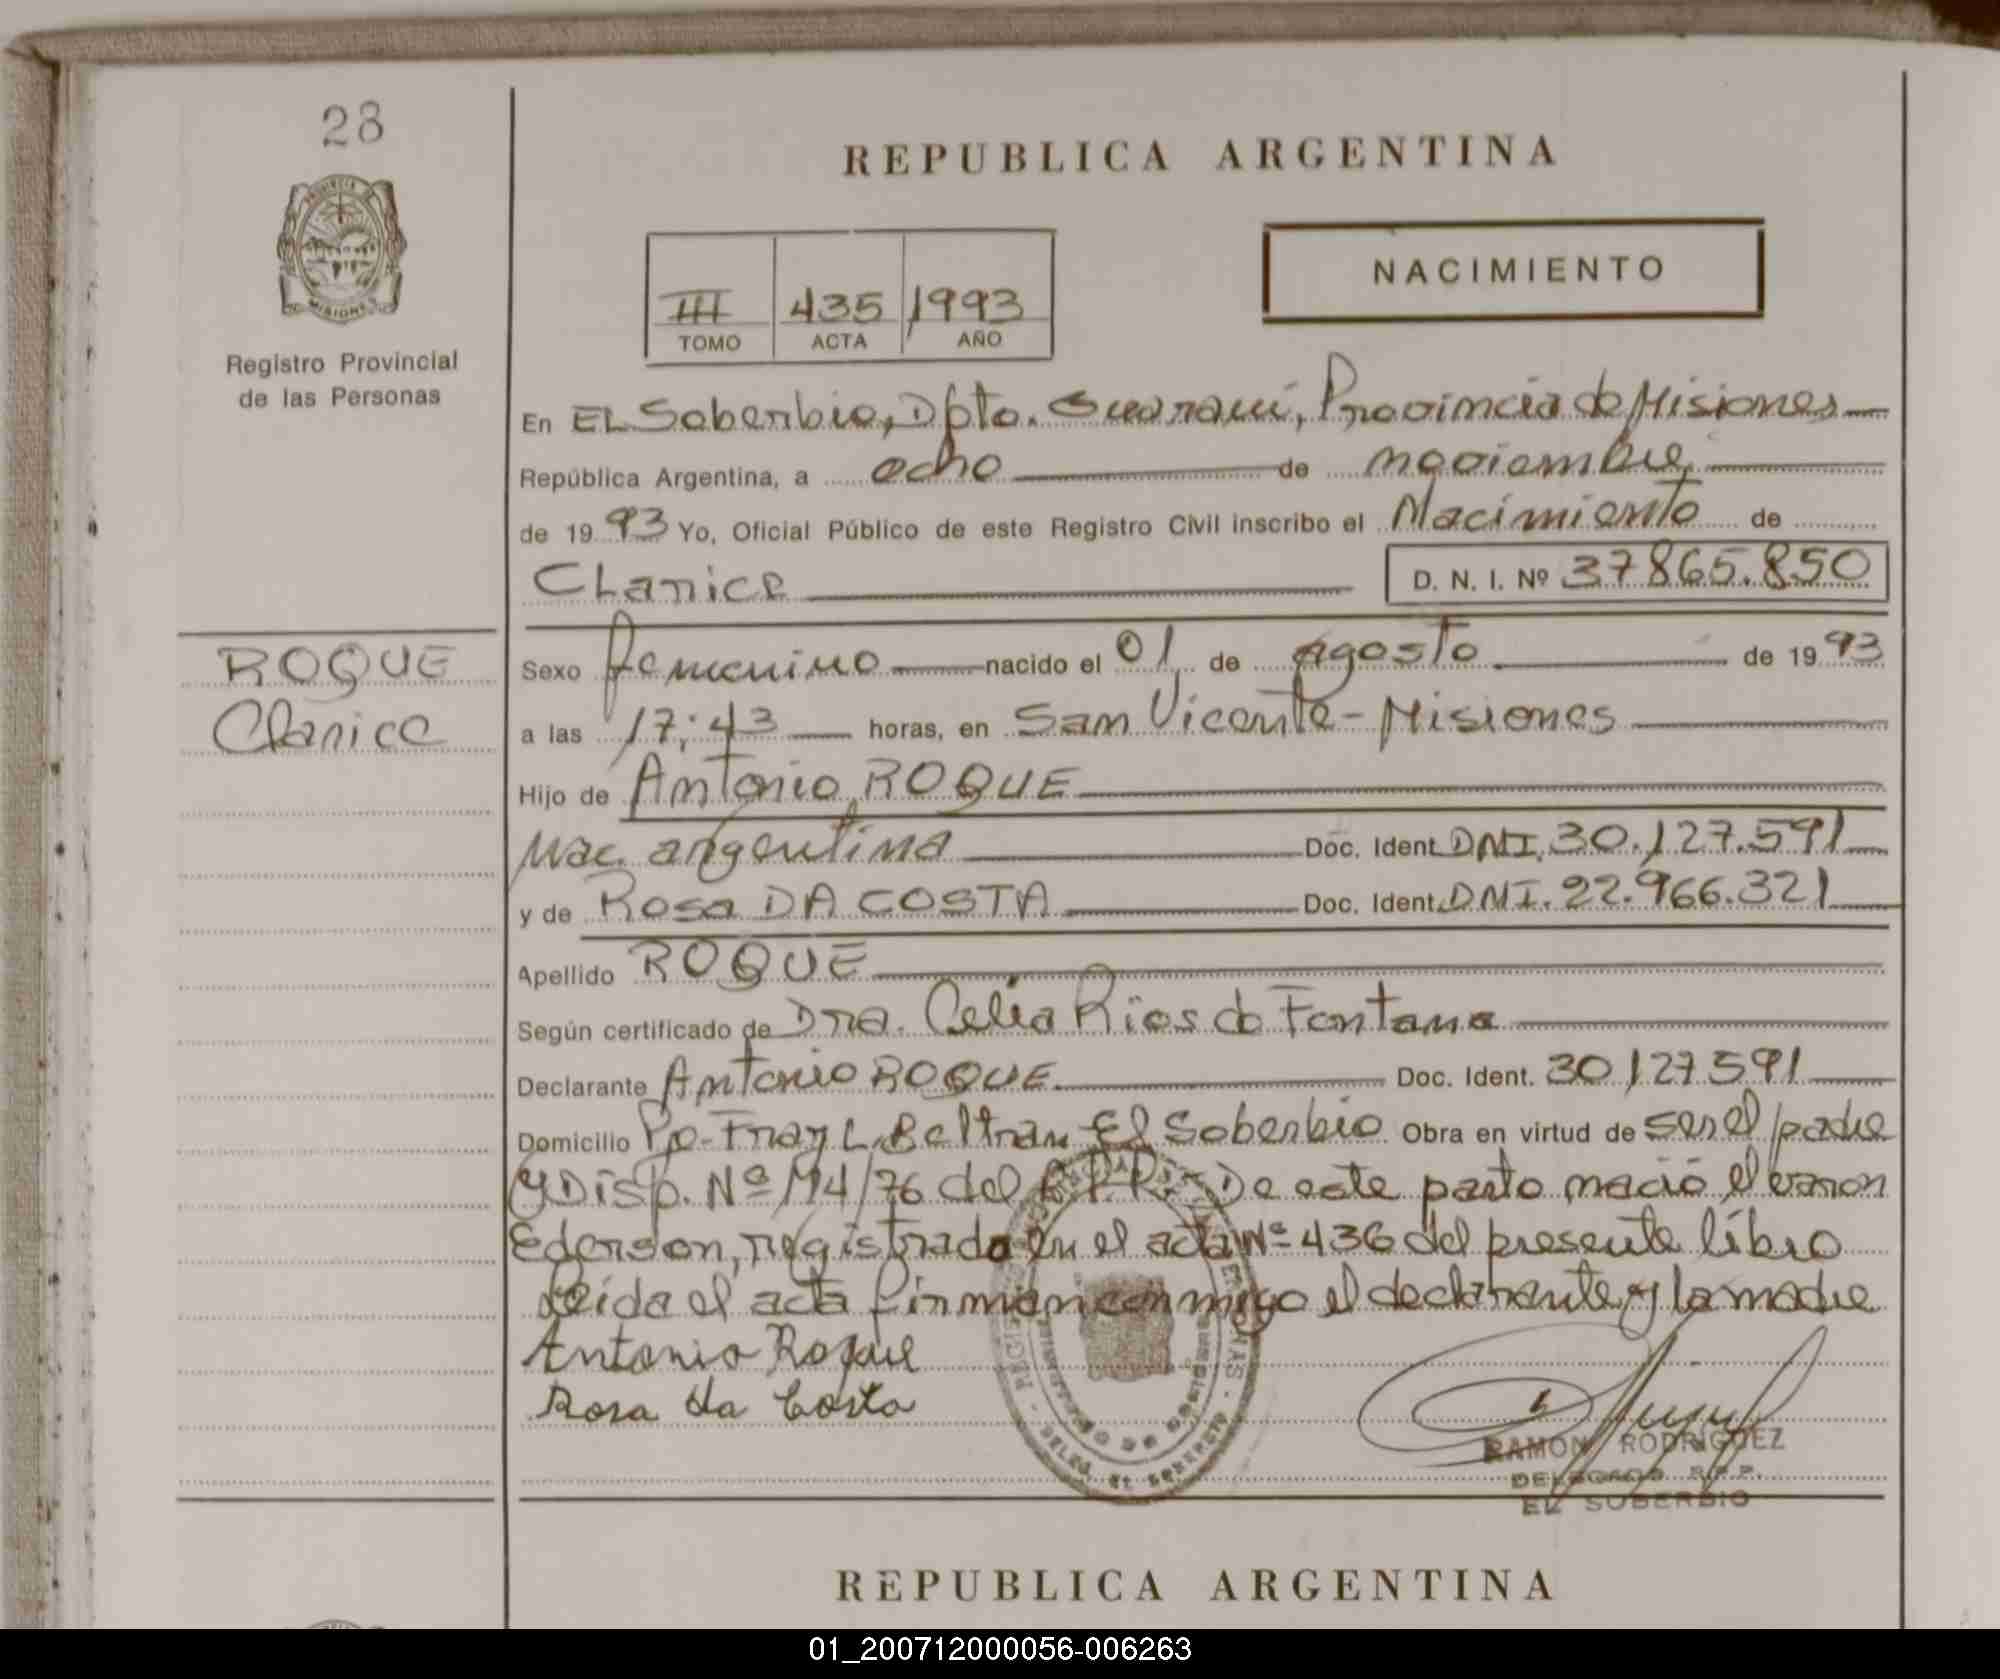 28
REPUBLICA ARGENTINA
NACIMIENTO
III 435 1993
TOMO ACTA AÑO
Registro Provincial
de las Personas
MISIONES
En EL Soberbio, Dpto. Guaraní, Provincia de Misiones
República Argentina, a ocho de noviembre,
de 1993 Yo, Oficial Público de este Registro Civil inscribo el Nacimiento de
Clarice D. N. I. Nº 37865.850
ROQUE
Clarice
Sexo femenino nacido el 01 de agosto de 1993
a las 17:43 horas, en San Vicente - Misiones
Hijo de Antonio ROQUE
Nac. argentina Doc. Ident. DNI. 30.127.591
y de Rosa DA COSTA Doc. Ident. DNI. 22.966.321
Apellido ROQUE
Según certificado de Dra. Celia Ríos de Fontana
Declarante Antonio ROQUE Doc. Ident. 30127591
Domicilio Pje- Fray L. Beltran El Soberbio Obra en virtud de ser el padre
y Disp. Nº 114/76 del R.P.P. De este parto nació el varon
Ederson, registrado en el acta Nº 436 del presente libro
Leída el acta firman conmigo el declarante y la madre
Antonio Roque
Rosa da Costa
RAMON RODRIGUEZ
DELEGADO R.P.P.
EL SOBERBIO
REPUBLICA ARGENTINA
01_200712000056-006263